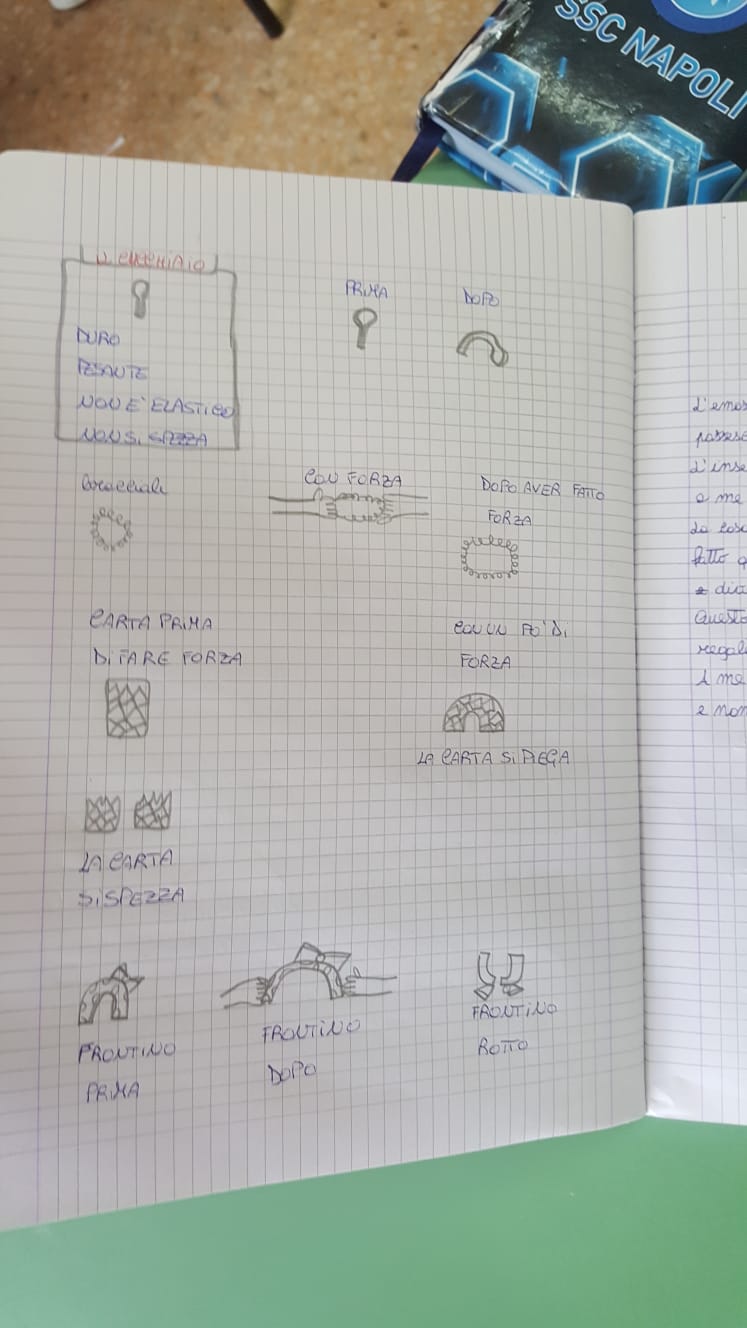 SSC NAPOLI
IL CUCCHIAIO
DURO
PESANTE
NON E' ELASTICO
NON SI SPEZZA
PRIMA
DOPO
CON FORZA
DOPO AVER FATTO
FORZA
CARTA PRIMA
DI FARE FORZA
CON UN PO' DI
FORZA
LA CARTA SI PIEGA
LA CARTA
SI SPEZZA
FRONTINO
PRIMA
FRONTINO
DOPO
FRONTINO
ROTTO
d'inse
a me
fatto q
Questo
regal
e non